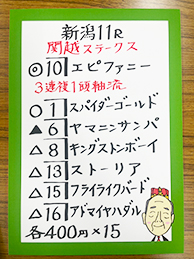 新潟11R
関越ステークス
◎10 エピファニー
3連複1頭軸流
○1 スパイダーゴールド
▲6 ヤマニンサンパ
△8 キングストンボーイ
△13 ストーリア
△15 フライライクバード
△16 アドマイヤハダル
各400円×15